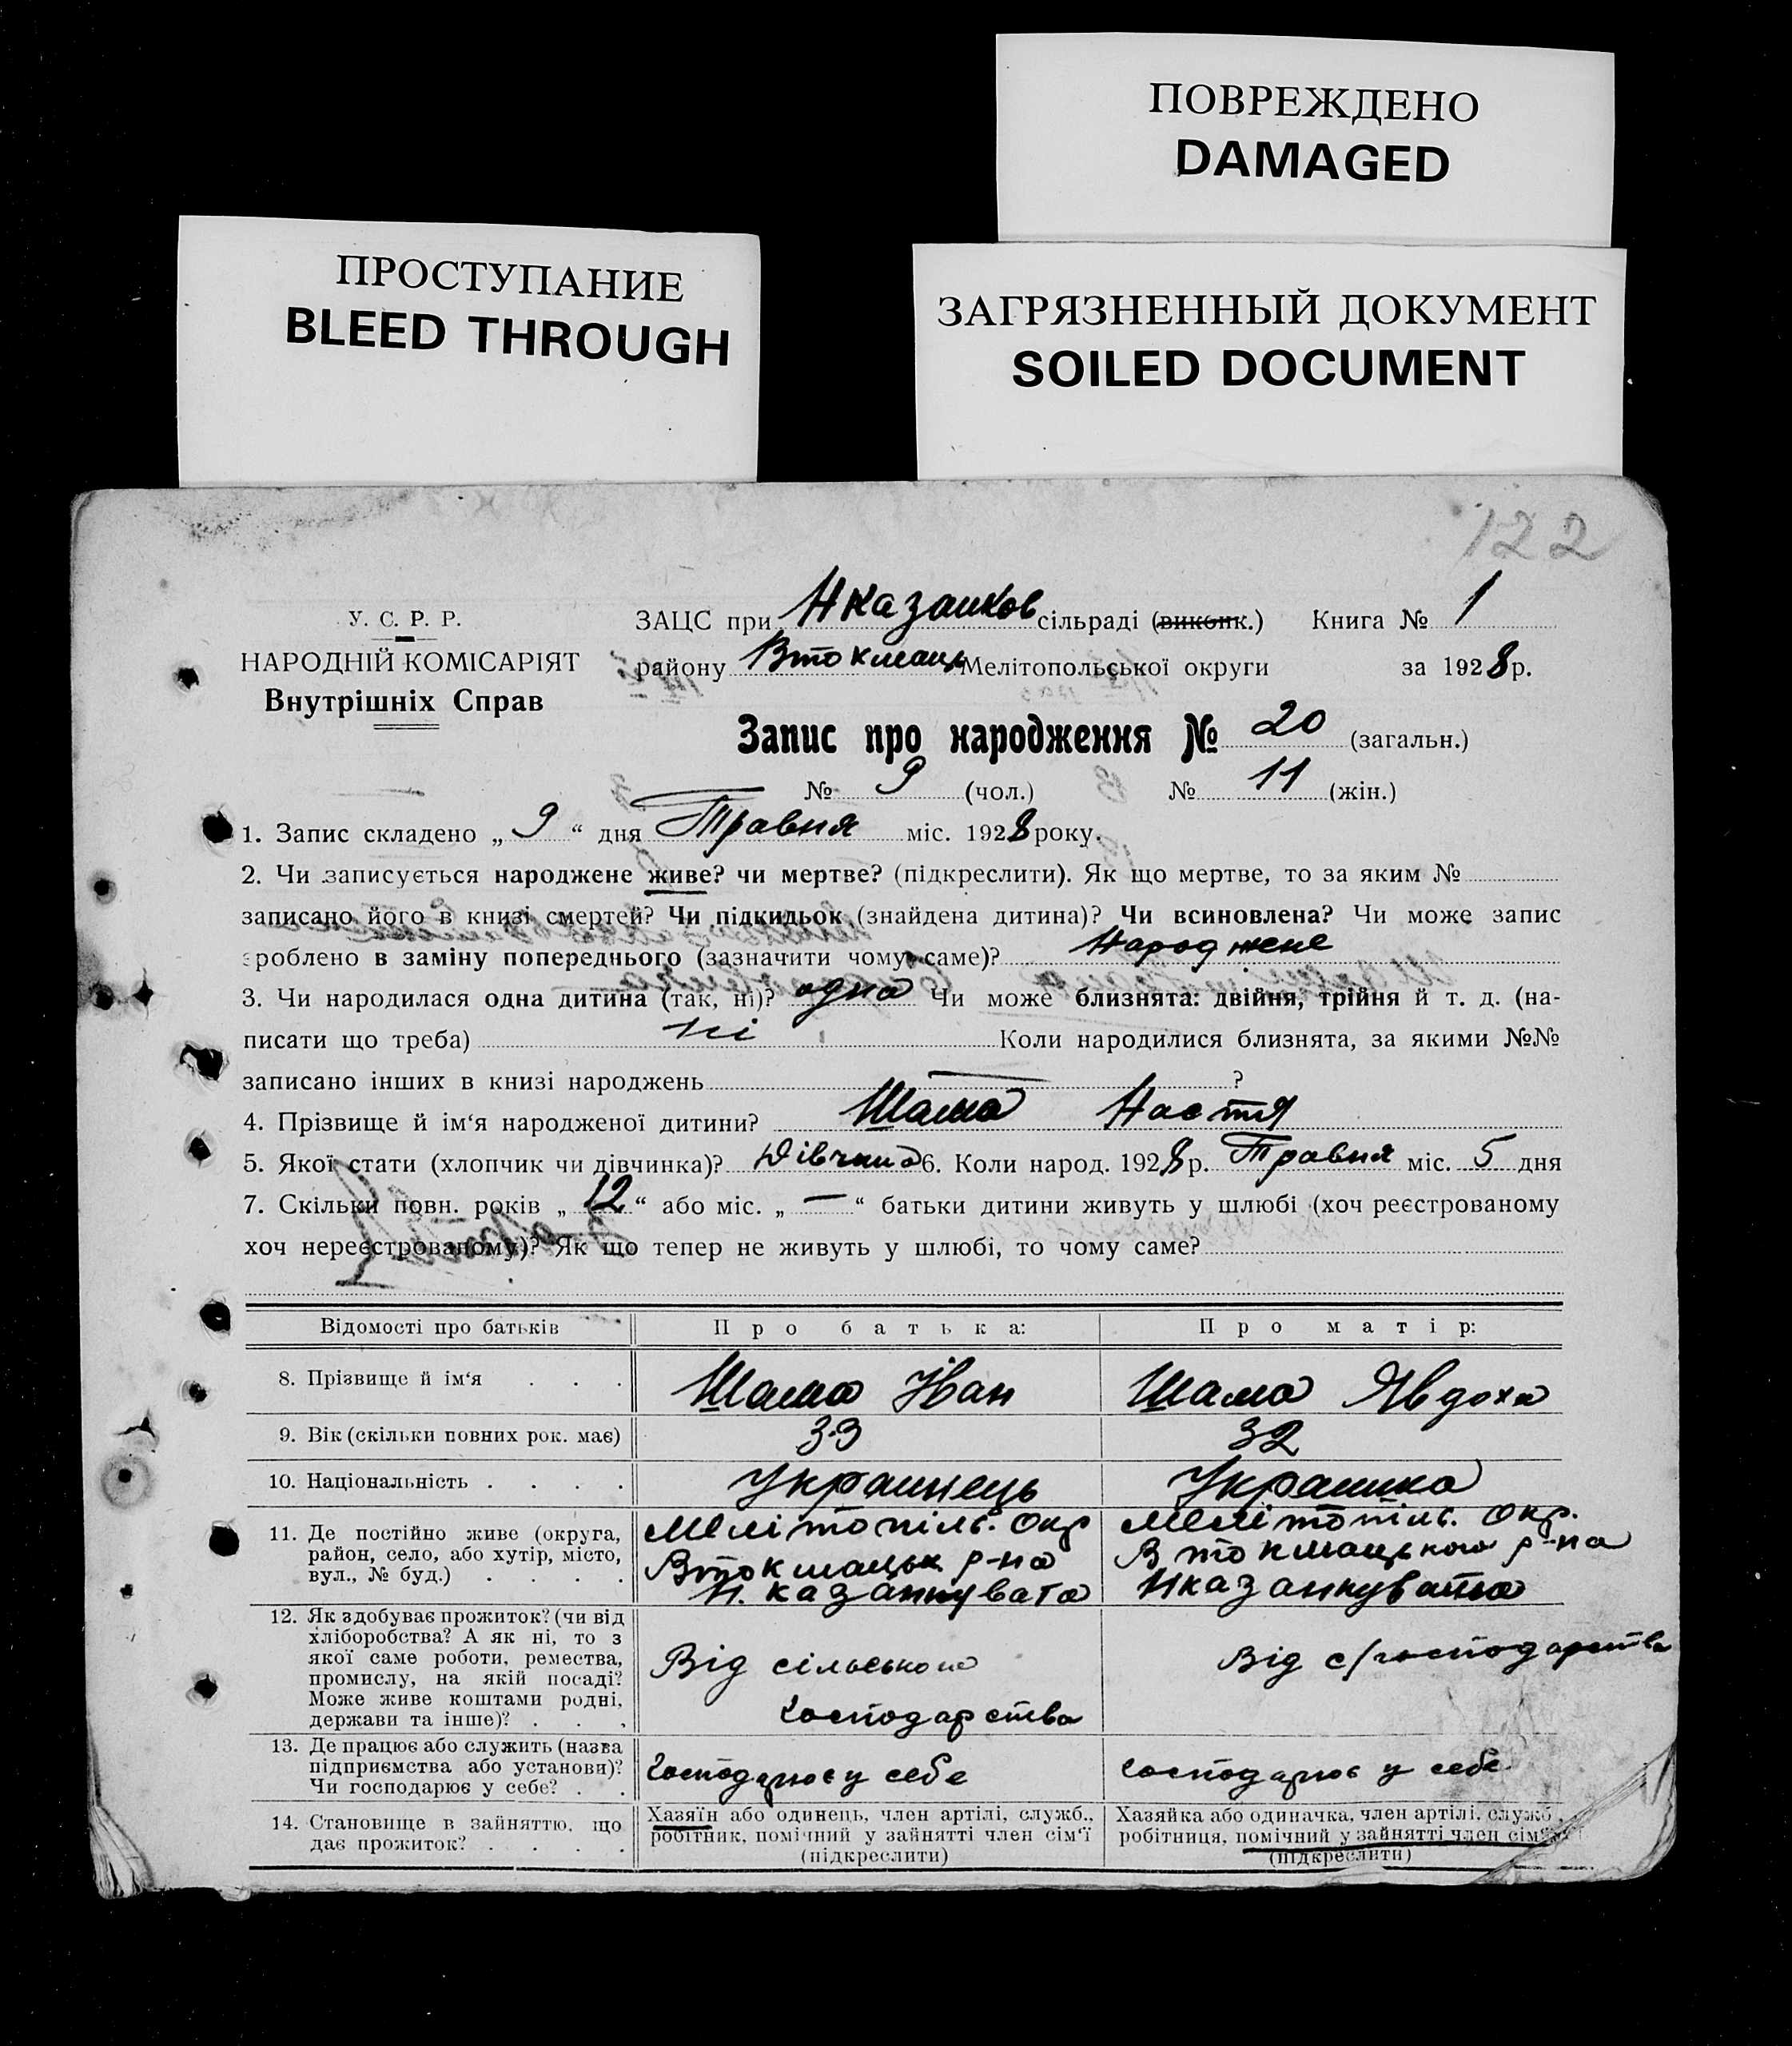 ПОВРЕЖДЕНО
DAMAGED
ПРОСТУПАНИЕ
BLEED THROUGH
ЗАГРЯЗНЕННЫЙ ДОКУМЕНТ
SOILED DOCUMENT
122
У. С. Р. Р.
НАРОДНІЙ КОМІСАРІЯТ
Внутрішніх Справ
ЗАЦС при Нказанков сільраді (виконк.) Книга № 1
району Втокмацьк Мелітопольської округи за 1928 р.
Запис про народження № 20 (загальн.)
№ 9 (чол.) № 11 (жін.)
1. Запис складено „ 9 “ дня Травня міс. 1928 року.
2. Чи записується народжене живе? чи мертве? (підкреслити). Як що мертве, то за яким №
записано його в книзі смертей? Чи підкидьок (знайдена дитина)? Чи всиновлена? Чи може запис
зроблено в заміну попереднього (зазначити чому саме)? Народжене
3. Чи народилася одна дитина (так, ні)? одна Чи може близнята: двійня, трійня й т. д. (на-
писати що треба) ні Коли народилися близнята, за якими №№
записано інших в книзі народжень — ?
4. Прізвище й ім‘я народженої дитини? Шама Настя
5. Якої стати (хлопчик чи дівчинка)? Дівчина 6. Коли народ. 1928 р. Травня міс. 5 дня
7. Скільки повн. років „ 12 “ або міс. „ — “ батьки дитини живуть у шлюбі (хоч реєстрованому
хоч нереєстрованому)? Як що тепер не живуть у шлюбі, то чому саме?
Відомості про батьків Про батька: Про матір:
8. Прізвище й ім‘я . . . Шама Іван Шама Явдоха
9. Вік (скільки повних рок. має) 33 32
10. Національність . . . . Украинець Украинка
11. Де постійно живе (округа,
район, село, або хутір, місто,
вул., № буд.) . . . .
Мелітопіль. Окр
Втокмацьк р-на
Н. казанкувата
Мелітопіль. Окр.
Втокмацького р-на
Нказанкувата
12. Як здобуває прожиток? (чи від
хліборобства? А як ні, то з
якої саме роботи, ремества,
промислу, на якій посаді?
Може живе коштами родні,
держави та інше)? . . .
Від сільського
господарства
Від с/господарства
13. Де працює або служить (назва
підприємства або установи)?
Чи господарює у себе? . .
Господарює у себе
господарює у себе
14. Становище в зайняттю, що
дає прожиток? . . . .
Хазяїн або одинець, член артілі, служб.,
робітник, помічний у зайнятті член сім‘ї
(підкреслити)
Хазяйка або одиначка, член артілі, служб.,
робітниця, помічний у зайнятті член сім‘ї
(підкреслити)